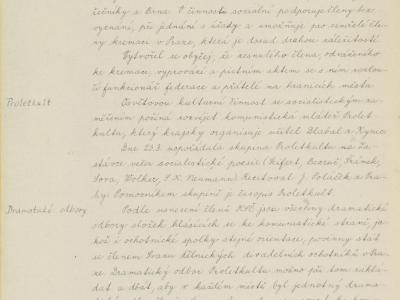 účníky z Brna. V činnosti sociální podporuje členy bez
vyznání, při jednání s úřady a umožňuje pro zemřelé čle-
ny kremaci v Praze, která je dosud drahou záležitostí.
Vytvořil se obyčej, že zesnulého člena, odváženého
ke kremaci, vyprovází a pietním aktem se s ním rozlou-
čí funkcionář federace a přátelé na hranicích města.
Proletkult
Osvětovou kulturní činnost se socialistickým za-
měřením počíná rozvíjet komunistická mládež Prolet-
kultu, který krajsky organisuje učitel Zlabal z Kynic.
Dne 23.3. uspořádala skupina Proletkultu na Za-
stávce večer socialistické poesie (Seifert, Bezruč, Šrámek,
Sova, Wolker, S.K. Neumann). Recitoval J. Poláček z Pra-
hy. Pomocníkem skupině je časopis Proletkult.
Dramatické odbory
Podle usnesení členů KSČ jsou všechny dramatické
odbory složek hlásících se ke komunistické straně, ja-
kož i ochotnické spolky stejné orientace, povinny stát
se členem Svazu dělnických divadelních ochotníků v Pra-
ze. Dramatický odbor Proletkultu možno při tom zaklá-
dat a dbát, aby v každém místě byl jednotný drama-